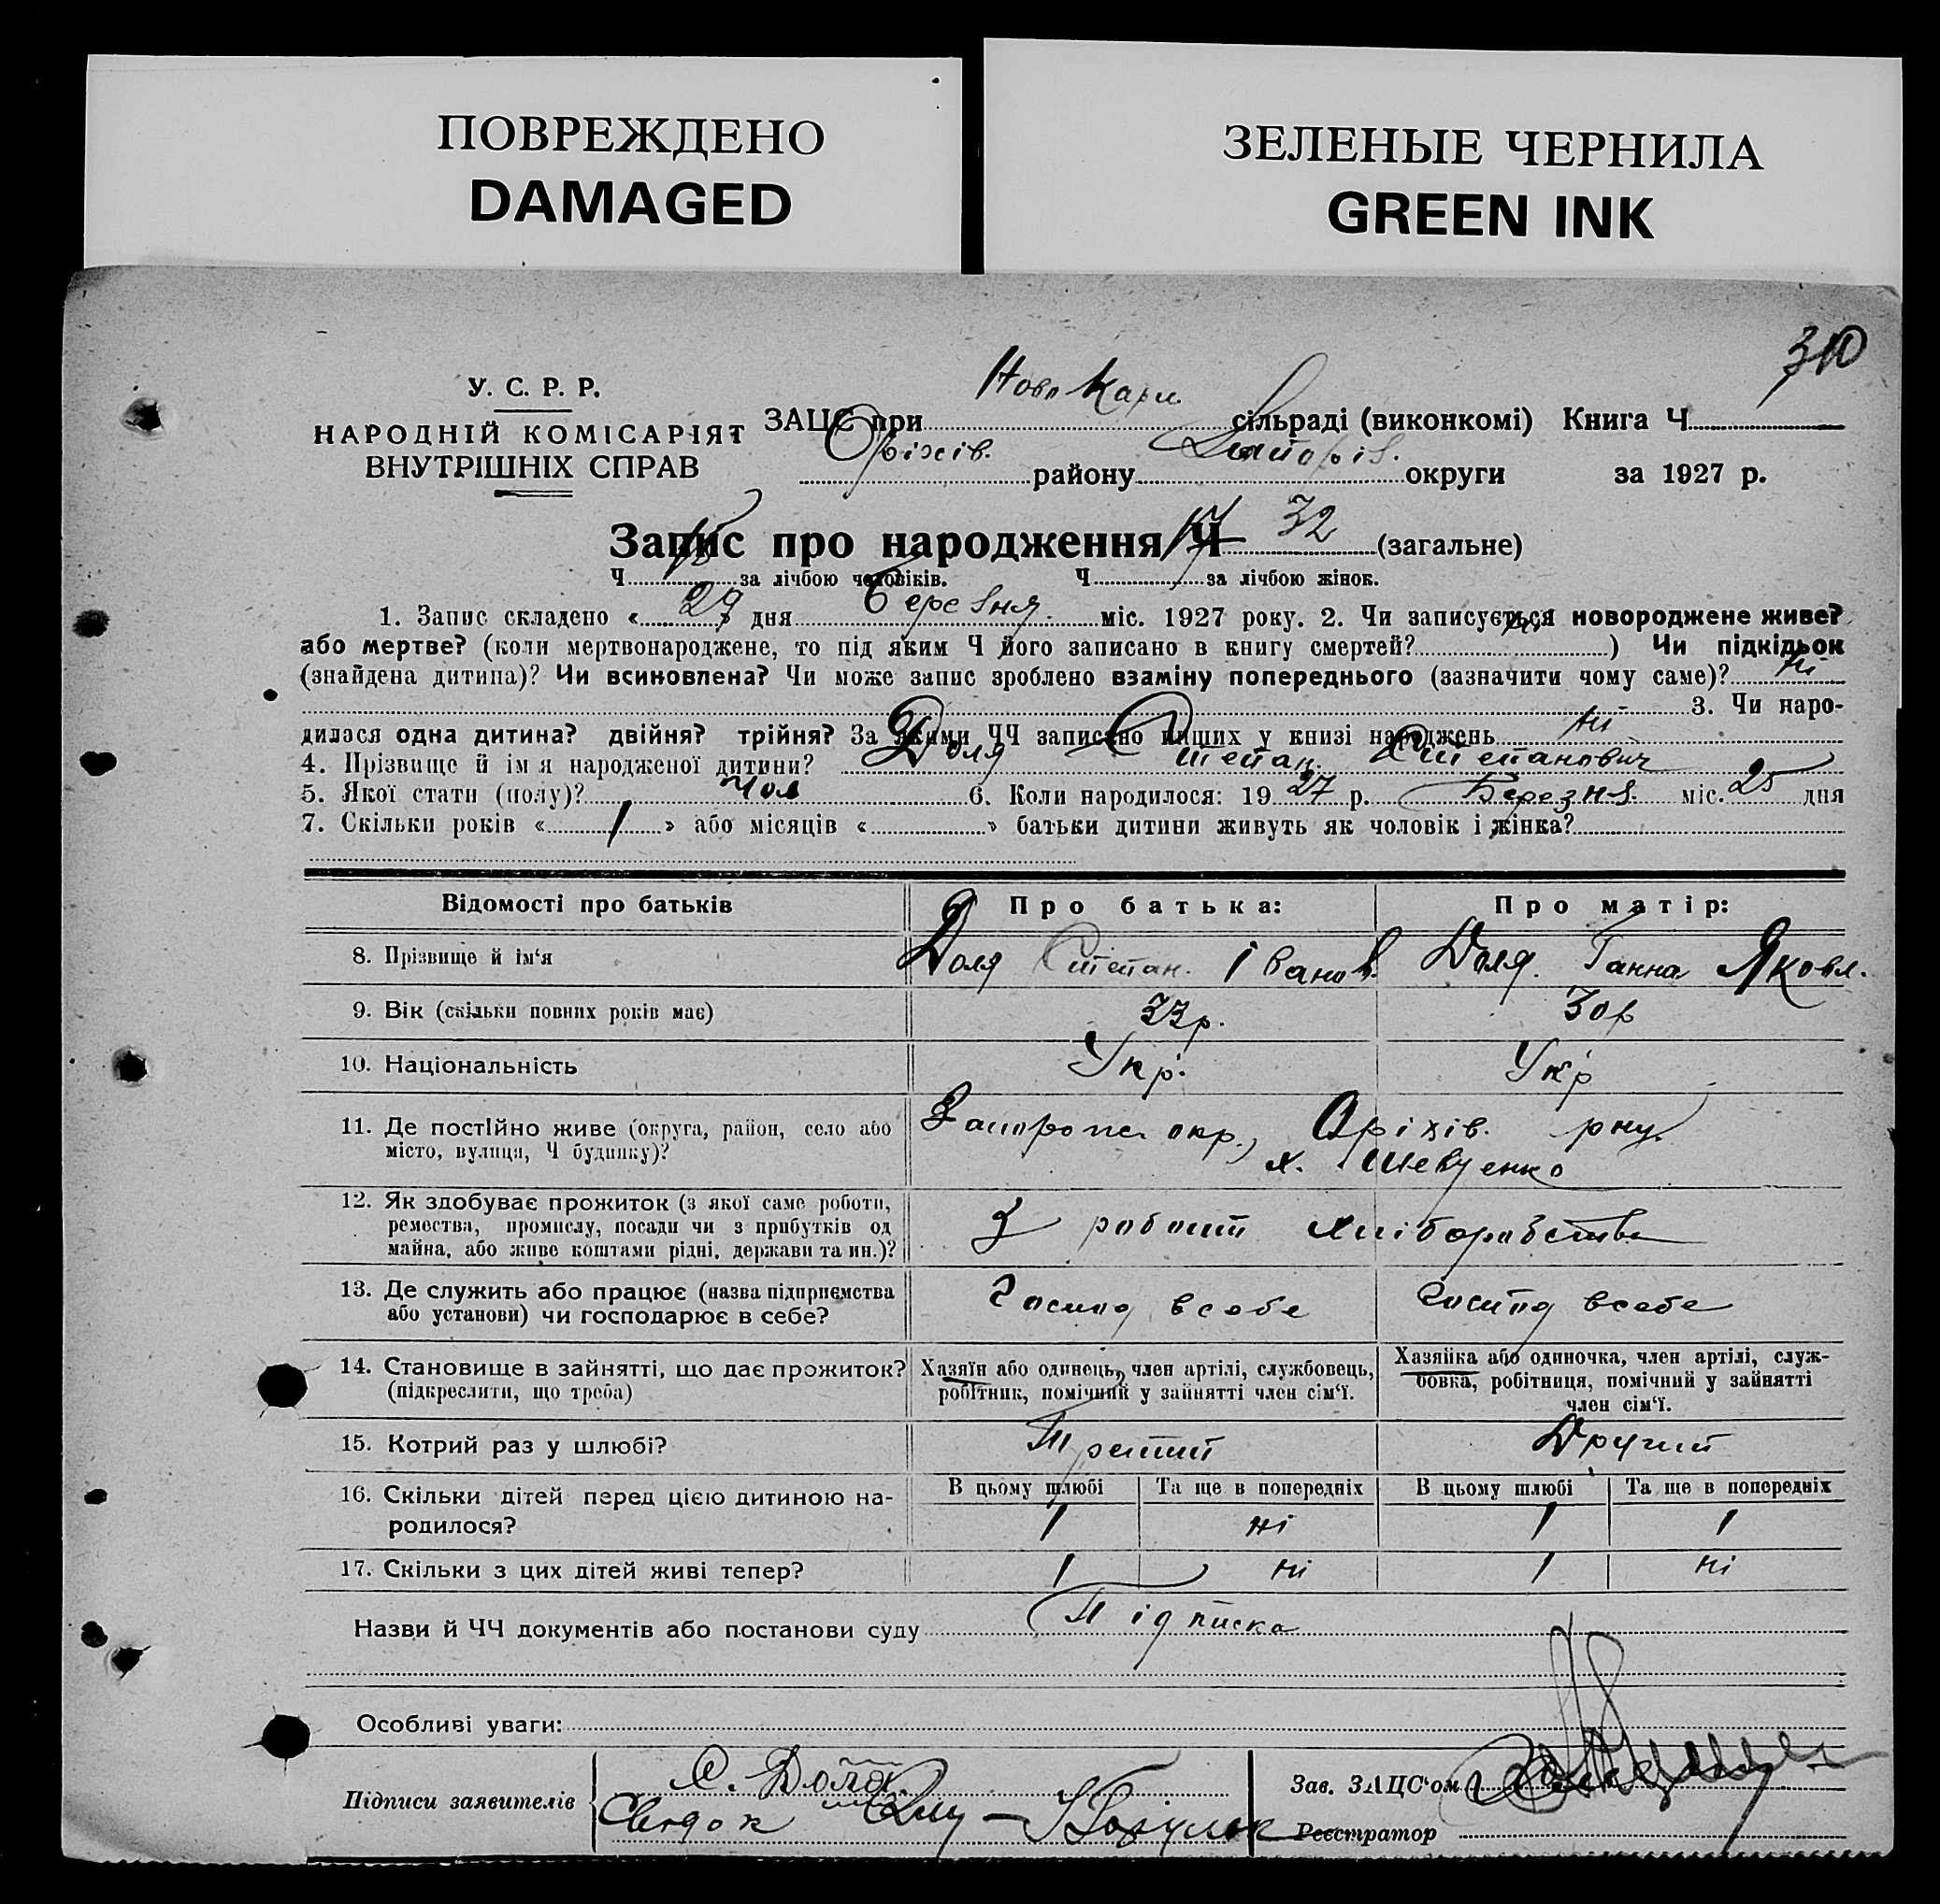 ПОВРЕЖДЕНО
DAMAGED
ЗЕЛЕНЫЕ ЧЕРНИЛА
GREEN INK
310
У. С. Р. Р.
НАРОДНІЙ КОМІСАРІЯТ
ВНУТРІШНІХ СПРАВ
ЗАЦС при Ново Карл. сільраді (виконкомі) Книга Ч
Оріхів. району Запоріз. округи за 1927 р.
Запис про народження Ч 32 (загальне)
Ч 15 за лічбою чоловіків. Ч 17 за лічбою жінок.
1. Запис складено « 29 » дня Березня міс. 1927 року. 2. Чи записується новороджене живе?
або мертве? (коли мертвонароджене, то під яким Ч його записано в книгу смертей? ) Чи підкідьок
(знайдена дитина)? Чи всиновлена? Чи може запис зроблено взаміну попереднього (зазначити чому саме)? Ні
3. Чи наро-
дилася одна дитина? двійня? трійня? За якими ЧЧ записано инших у книзі народжень Ні
4. Прізвище й ім'я народженої дитини? Доля Степан Степанович
5. Якої стати (полу)? Чол 6. Коли народилося: 19 27 р. Березня міс. 25 дня
7. Скільки років « 1 » або місяців « » батьки дитини живуть як чоловік і жінка?
Відомості про батьків Про батька: Про матір:
8. Прізвище й ім'я Доля Степан Іванов. Доля Ганна Яковл.
9. Вік (скільки повних років має) 33р. 30р
10. Національність Укр. Укр
11. Де постійно живе (округа, район, село або
місто, вулиця, Ч будинку)?
Запорож окр., Оріхів. рну.
х. Шевченко
12. Як здобуває прожиток (з якої саме роботи,
ремества, промислу, посади чи з прибутків од
майна, або живе коштами рідні, держави та ин.)?
З роботи хліборобства
13. Де служить або працює (назва підприємства
або установи) чи господарює в себе?
Господ в себе Господ в себе
14. Становище в зайнятті, що дає прожиток?
(підкреслити, що треба)
Хазяїн або одинець, член артілі, службовець,
робітник, помічний у зайнятті член сім'ї.
Хазяйка або одиночка, член артілі, служ-
бовка, робітниця, помічний у зайнятті
член сім'ї.
15. Котрий раз у шлюбі? Третий Другий
16. Скільки дітей перед цією дитиною на-
родилося?
В цьому шлюбі Та ще в попередніх В цьому шлюбі Та ще в попередніх
1 Ні 1 1
17. Скільки з цих дітей живі тепер? 1 Ні 1 Ні
Назви й ЧЧ документів або постанови суду Підписка
Особливі уваги:
Підписи заявителів С. Доля
Свідок
Зав. ЗАЦС'ом
Реєстратор